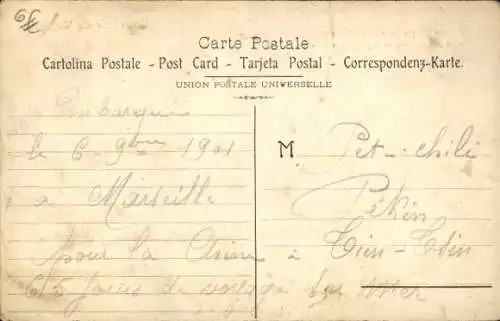 Carte Postale
Cartolina Postale - Post Card - Tarjeta Postal - Correspondenz-Karte.
UNION POSTALE UNIVERSELLE
Embarqué
le 6 - 9bre 1901
a Marseille
pour la Chine
65 jours de voyage sur mer
M. Pet-chili
Pékin
à Tien-Tsin